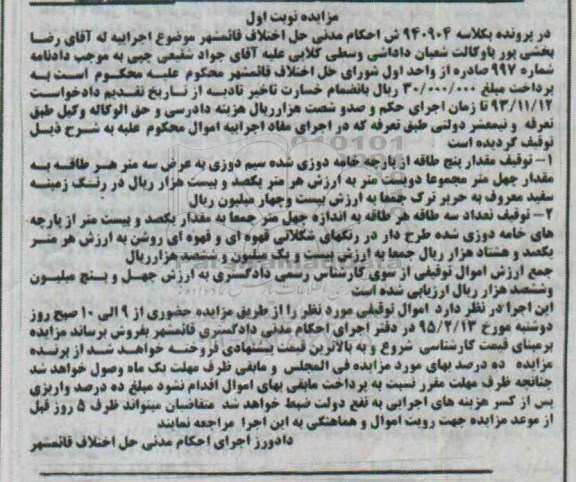 مزایده نوبت اول
در پرونده بکلاسه ۹۴۰۹۰۴ ش احکام مدنی حل اختلاف قائمشهر موضوع اجراییه له آقای رضا
بخشی پور باوکالت شعبان داداشی وسطی کلایی علیه آقای جواد شفیعی چبی به موجب دادنامه
شماره ۹۹۷ صادره از واحد اول شورای حل اختلاف قائمشهر محکوم علیه محکوم است به
پرداخت مبلغ ۳۰/۰۰۰/۰۰۰ ریال بانضمام خسارت تاخیر تادیه از تاریخ تقدیم دادخواست
۹۳/۱۱/۱۲ تا زمان اجرای حکم و صدو شصت هزارریال هزینه دادرسی و حق الوکاله وکیل طبق
تعرفه و نیمعشر دولتی طبق تعرفه که در اجرای مفاد اجراییه اموال محکوم علیه به شرح ذیل
توقیف گردیده است
۱- توقیف مقدار پنج طاقه از پارچه خامه دوزی شده سیم دوزی به عرض سه متر هر طاقه به
مقدار چهل متر مجموعا دویست متر به ارزش هر متر یکصد و بیست هزار ریال در رنگ زمینه
سفید معروف به حریر ترک جمعا به ارزش بیست وچهار میلیون ریال
۲- توقیف تعداد سه طاقه هر طاقه به اندازه چهل متر جمعا به مقدار یکصد و بیست متر از پارچه
های خامه دوزی شده طرح دار در رنگهای شکلاتی قهوه ای و قهوه ای روشن به ارزش هر متر
یکصد و هشتاد هزار ریال جمعا به ارزش بیست و یک میلیون و ششصد هزارریال
جمع ارزش اموال توقیفی از سوی کارشناس رسمی دادگستری به ارزش چهل و پنج میلیون
وششصد هزار ریال ارزیابی شده است
این اجرا در نظر دارد اموال توقیفی مورد نظر را از طریق مزایده حضوری از ۹ الی ۱۰ صبح روز
دوشنبه مورخ ۹۵/۲/۱۳ در دفتر اجرای احکام مدنی دادگستری قائمشهر بفروش برساند مزایده
برمبنای قیمت کارشناسی شروع و به بالاترین قیمت پیشنهادی فروخته خواهد شد از برنده
مزایده ده درصد بهای مورد مزایده فی المجلس و مابقی ظرف مهلت یک ماه وصول خواهد شد
چنانچه ظرف مهلت مقرر نسبت به پرداخت مابقی بهای اموال اقدام نشود مبلغ ده درصد واریزی
پس از کسر هزینه های اجرایی به نفع دولت ضبط خواهد شد متقاضیان میتواند ظرف ۵ روز قبل
از موعد مزایده جهت رویت اموال و هماهنگی به این اجرا مراجعه نمایند
دادورز اجرای احکام مدنی حل اختلاف قائمشهر